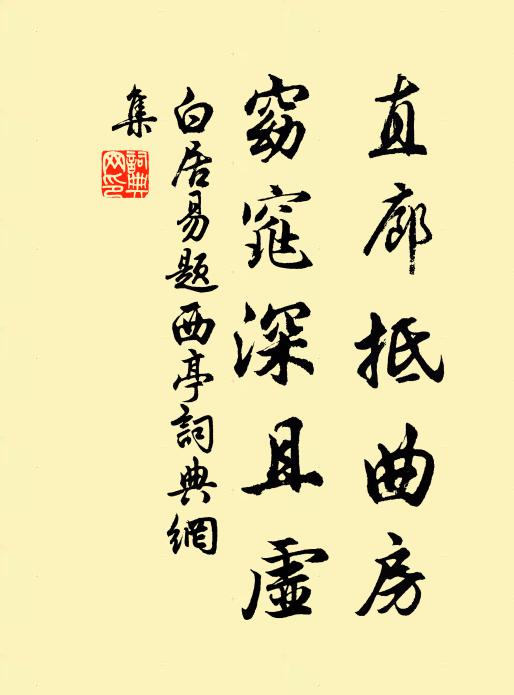 直廊抵曲房
窈窕深且虛
白居易題西亭詞典網
集
詞典
网印